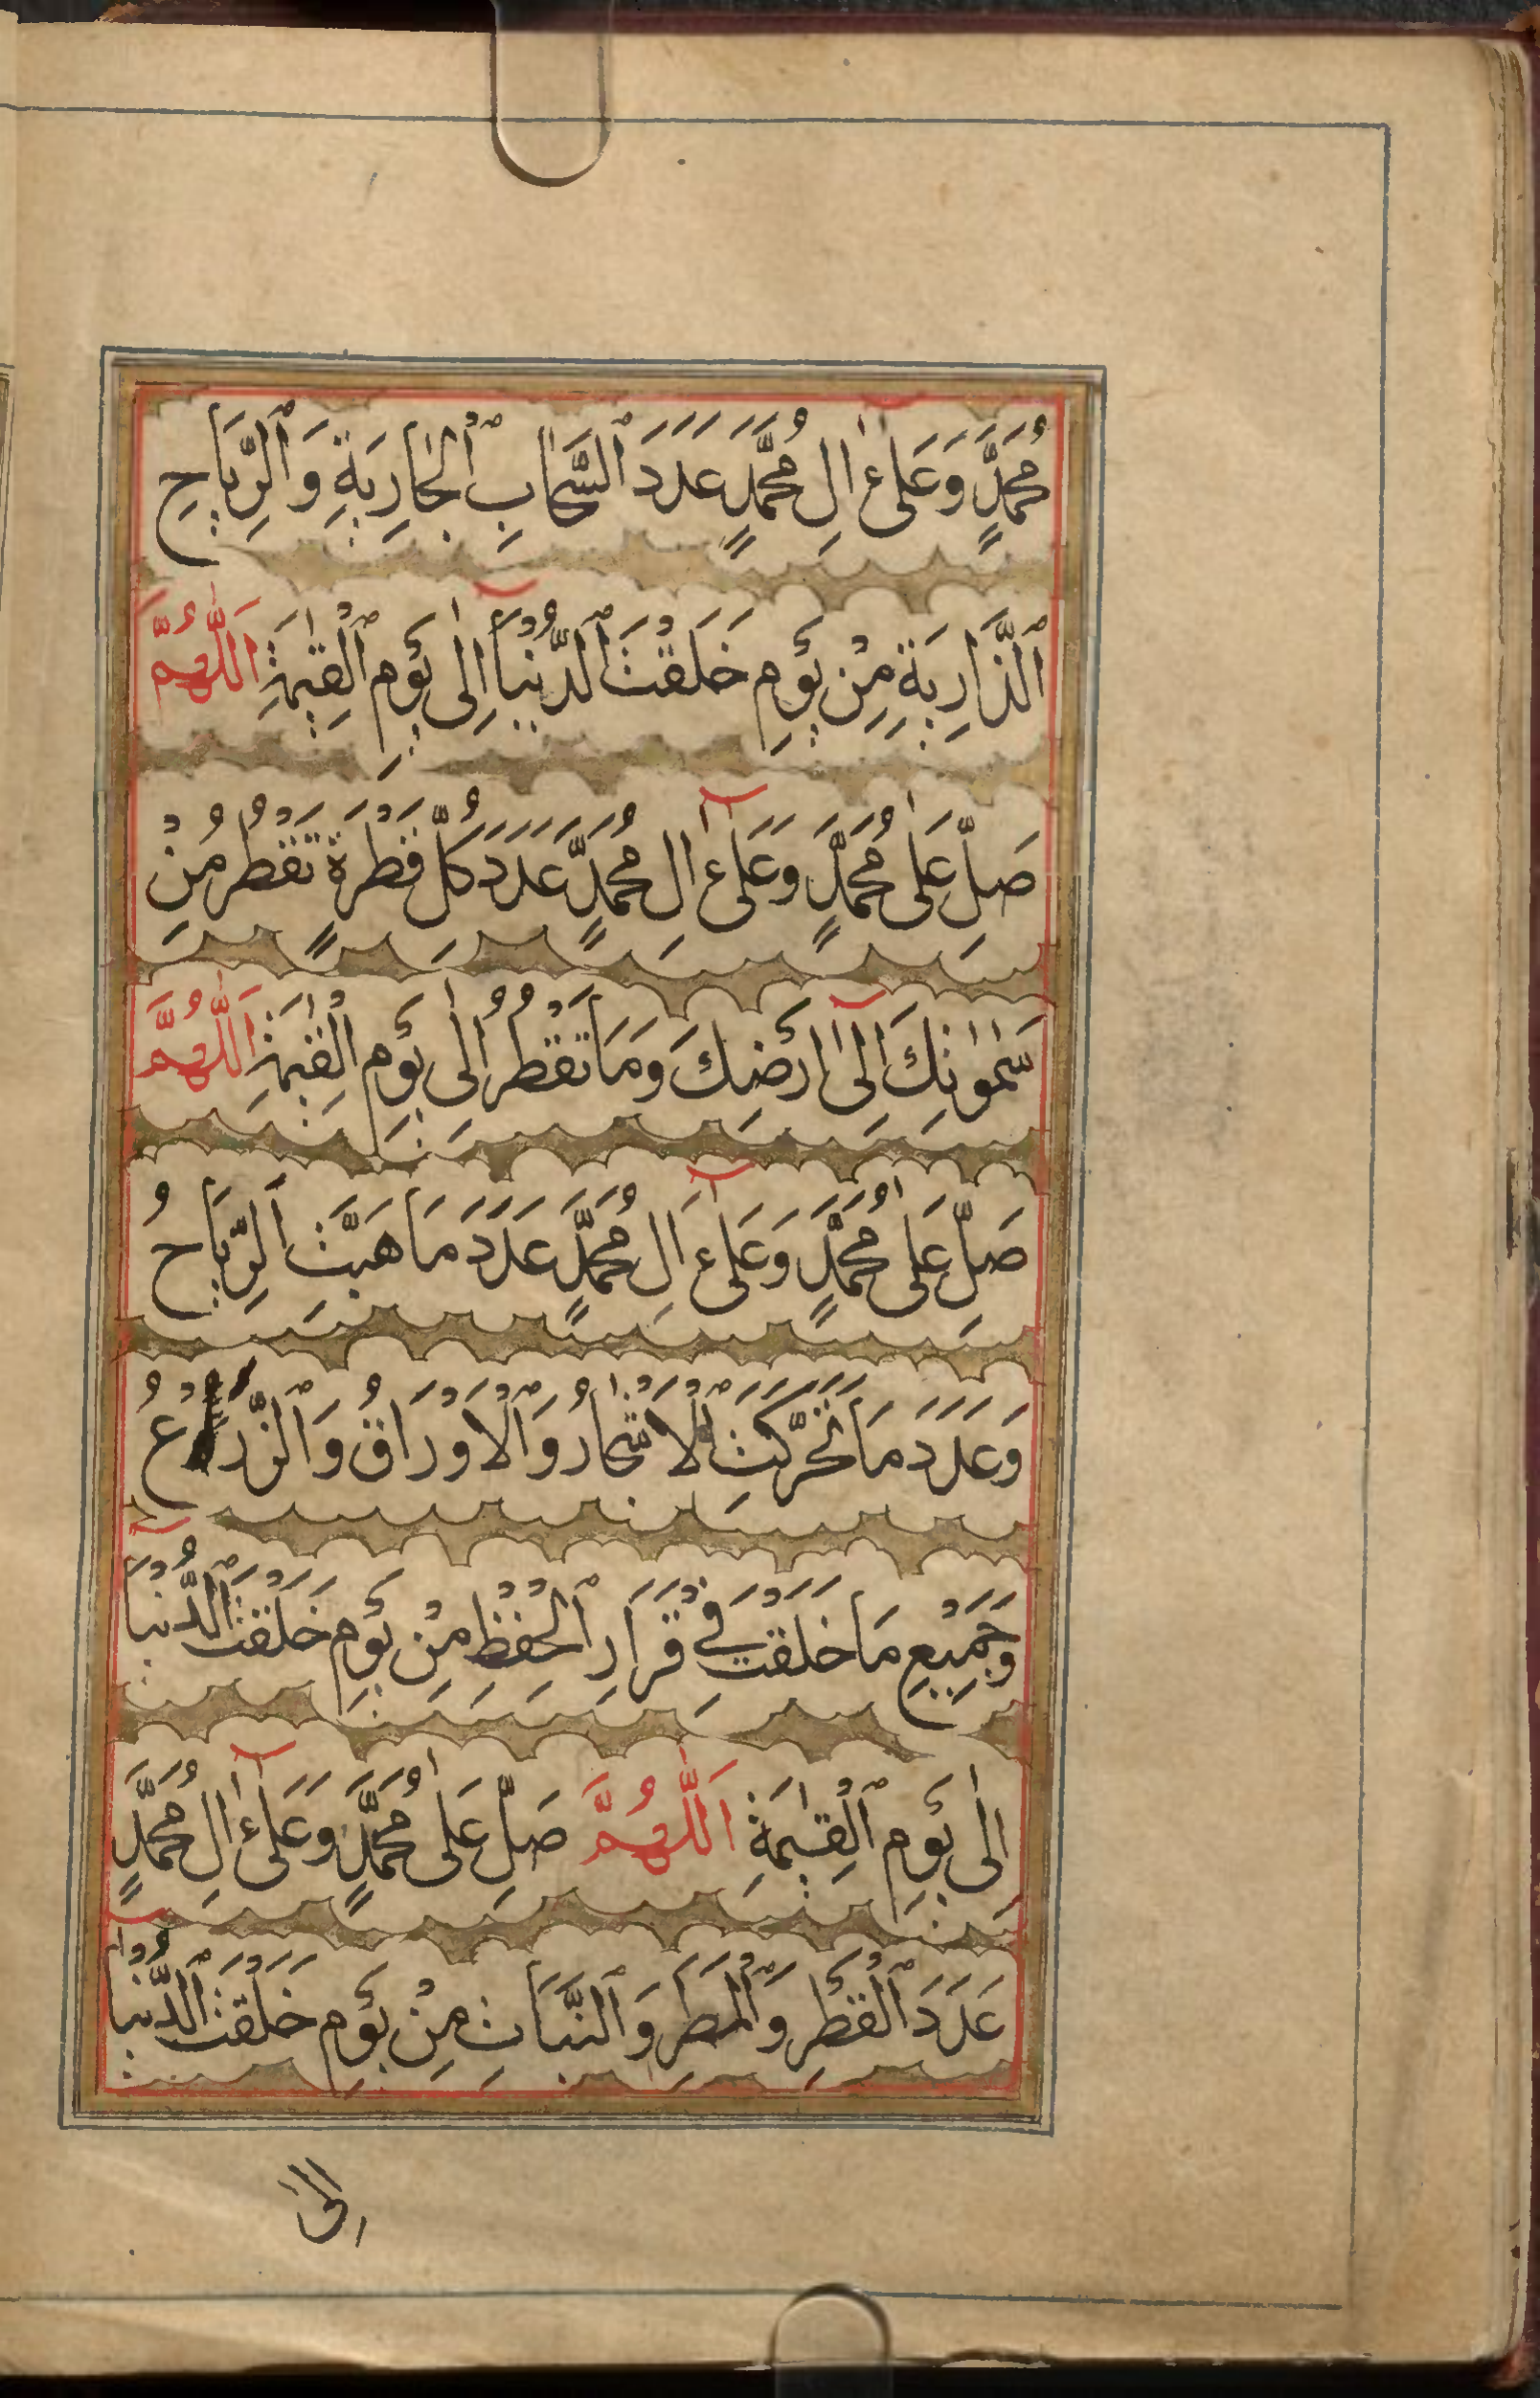 مُحَمَّدٍ وَعَلَىٰ اٰلِ مُحَمَّدٍ عَدَدَ ٱلسَّحَابِ ٱلْجَارِيَةِ وَٱلرِّيَاحِ
ٱلذَّارِيَةِ مِنْ يَوْمِ خَلَقْتَ ٱلدُّنْيَآ اِلٰى يَوْمِ ٱلْقِيٰمَةِ اَللّٰهُمَّ
صَلِّ عَلٰى مُحَمَّدٍ وَعَلَىٰٓ اٰلِ مُحَمَّدٍ عَدَدَ كُلِّ قَطْرَةٍ تَقْطُرُ مِنْ
سَمٰوٰتِكَ اِلٰىٓ اَرْضِكَ وَمَا تَقْطُرُ اِلٰى يَوْمِ الْقِيٰمَةِ اَللّٰهُمَّ
صَلِّ عَلٰى مُحَمَّدٍ وَعَلَىٰٓ اٰلِ مُحَمَّدٍ عَدَدَ مَا هَبَّتِ الرِّيَاحُ
وَعَدَدَ مَا تَحَرَّكَتِ ٱلْاَشْجَارُ وَٱلْاَوْرَاقُ وَٱلزَّرْعُ
وَجَمِيْعِ مَا خَلَقْتَ فِيْ قَرَارِ ٱلْحِفْظِ مِنْ يَوْمِ خَلَقْتَ ٱلدُّنْيَآ
اِلٰى يَوْمِ ٱلْقِيٰمَةِ اَللّٰهُمَّ صَلِّ عَلٰى مُحَمَّدٍ وَعَلَىٰٓ اٰلِ مُحَمَّدٍ
عَدَدَ ٱلْقَطْرِ وَٱلْمَطَرِ وَٱلنَّبَاتِ مِنْ يَوْمِ خَلَقْتَ ٱلدُّنْيَآ
اِلٰى